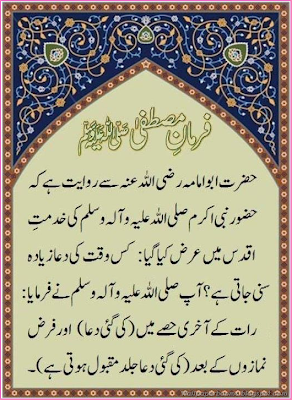 فرمانِ مصطفیٰ ﷺ
حضرت ابو امامہ رضی اللہ عنہ سے روایت ہے کہ
حضور نبی اکرم صلی اللہ علیہ وآلہ وسلم کی خدمتِ
اقدس میں عرض کیا گیا: کس وقت کی دعا زیادہ
سنی جاتی ہے؟ آپ صلی اللہ علیہ وآلہ وسلم نے فرمایا:
رات کے آخری حصے میں (کی گئی دعا) اور فرض
نمازوں کے بعد (کی گئی دعا جلد مقبول ہوتی ہے)۔